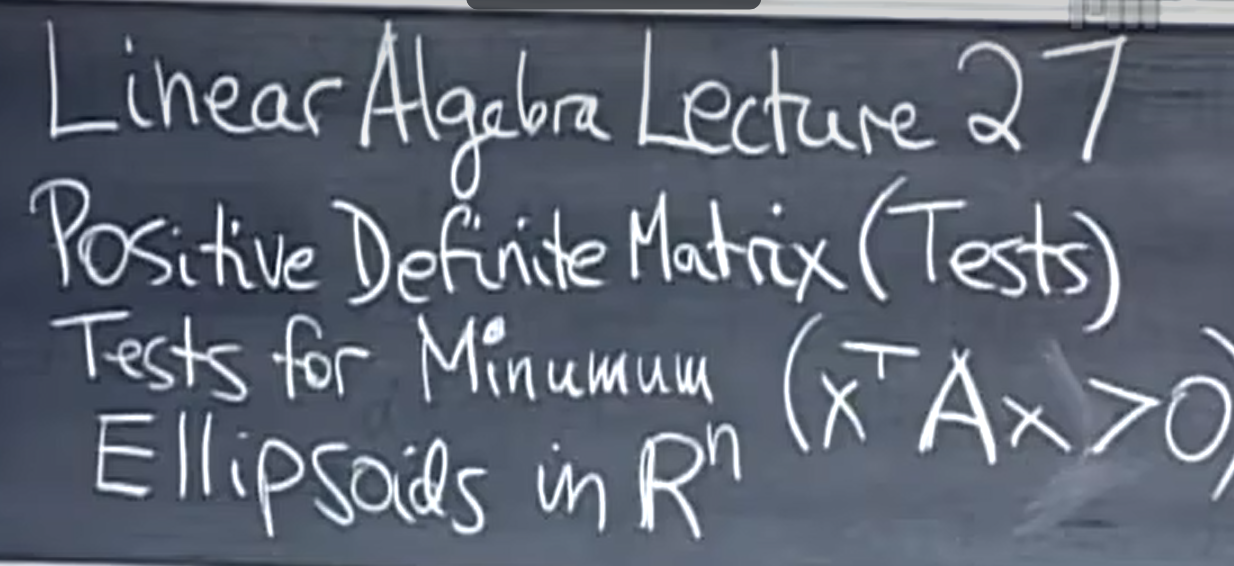 Linear Algebra Lecture 27
Positive Definite Matrix (Tests)
Tests for Minumum (xᵀAx>0)
Ellipsoids in Rⁿ